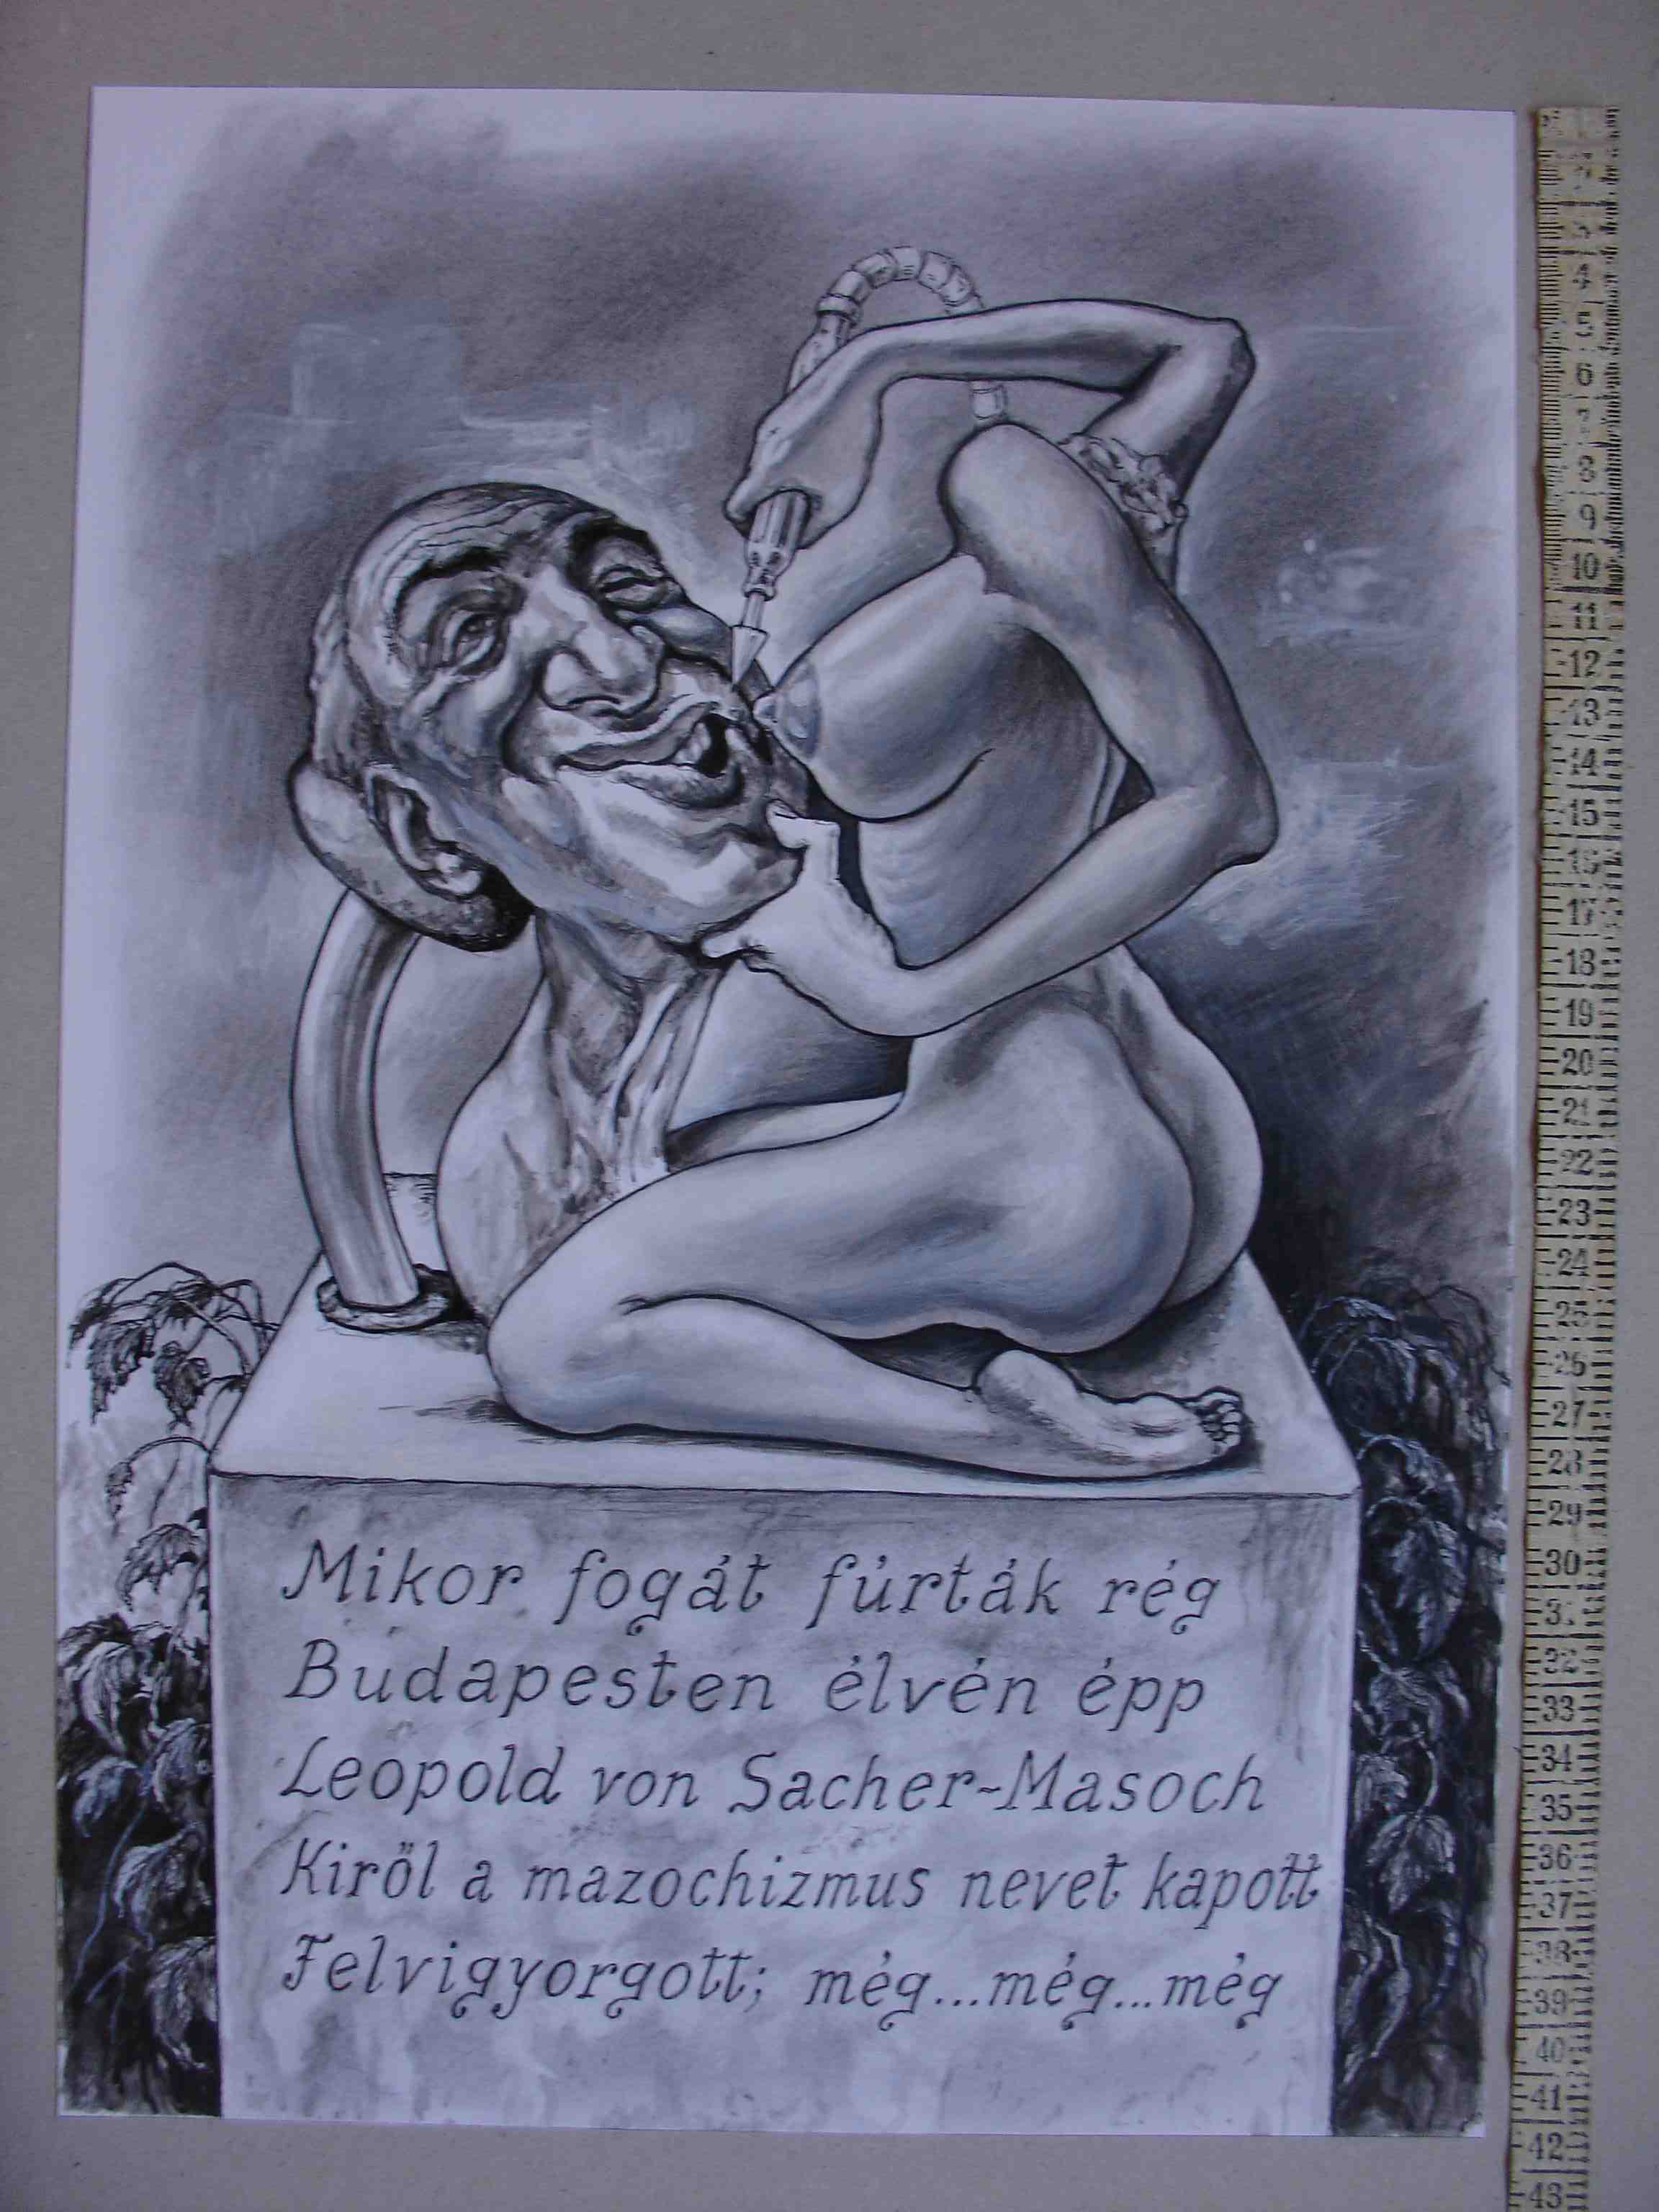 Mikor fogát fúrták rég
Budapesten élvén épp
Leopold von Sacher-Masoch
Kiről a mazochizmus nevet kapott
Felvigyorgott; még...még...még
4
5
6
7
8
9
10
11
12
13
14
15
16
17
18
19
20
21
22
23
24
25
26
27
28
29
30
32
33
34
35
36
37
38
39
40
41
42
43